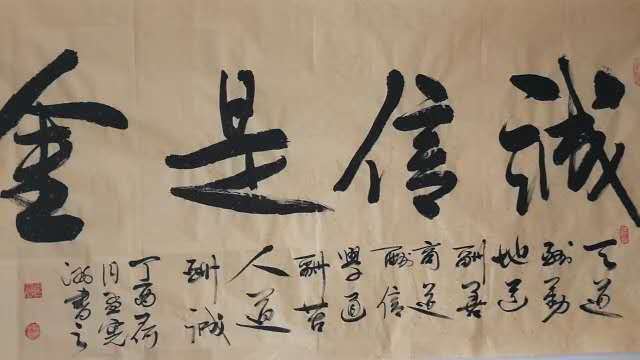 誠信是金
天道
酬勤
地道
酬善
商道
酬信
學道
酬苦
人道
酬誠
丁酉荷
月
書之